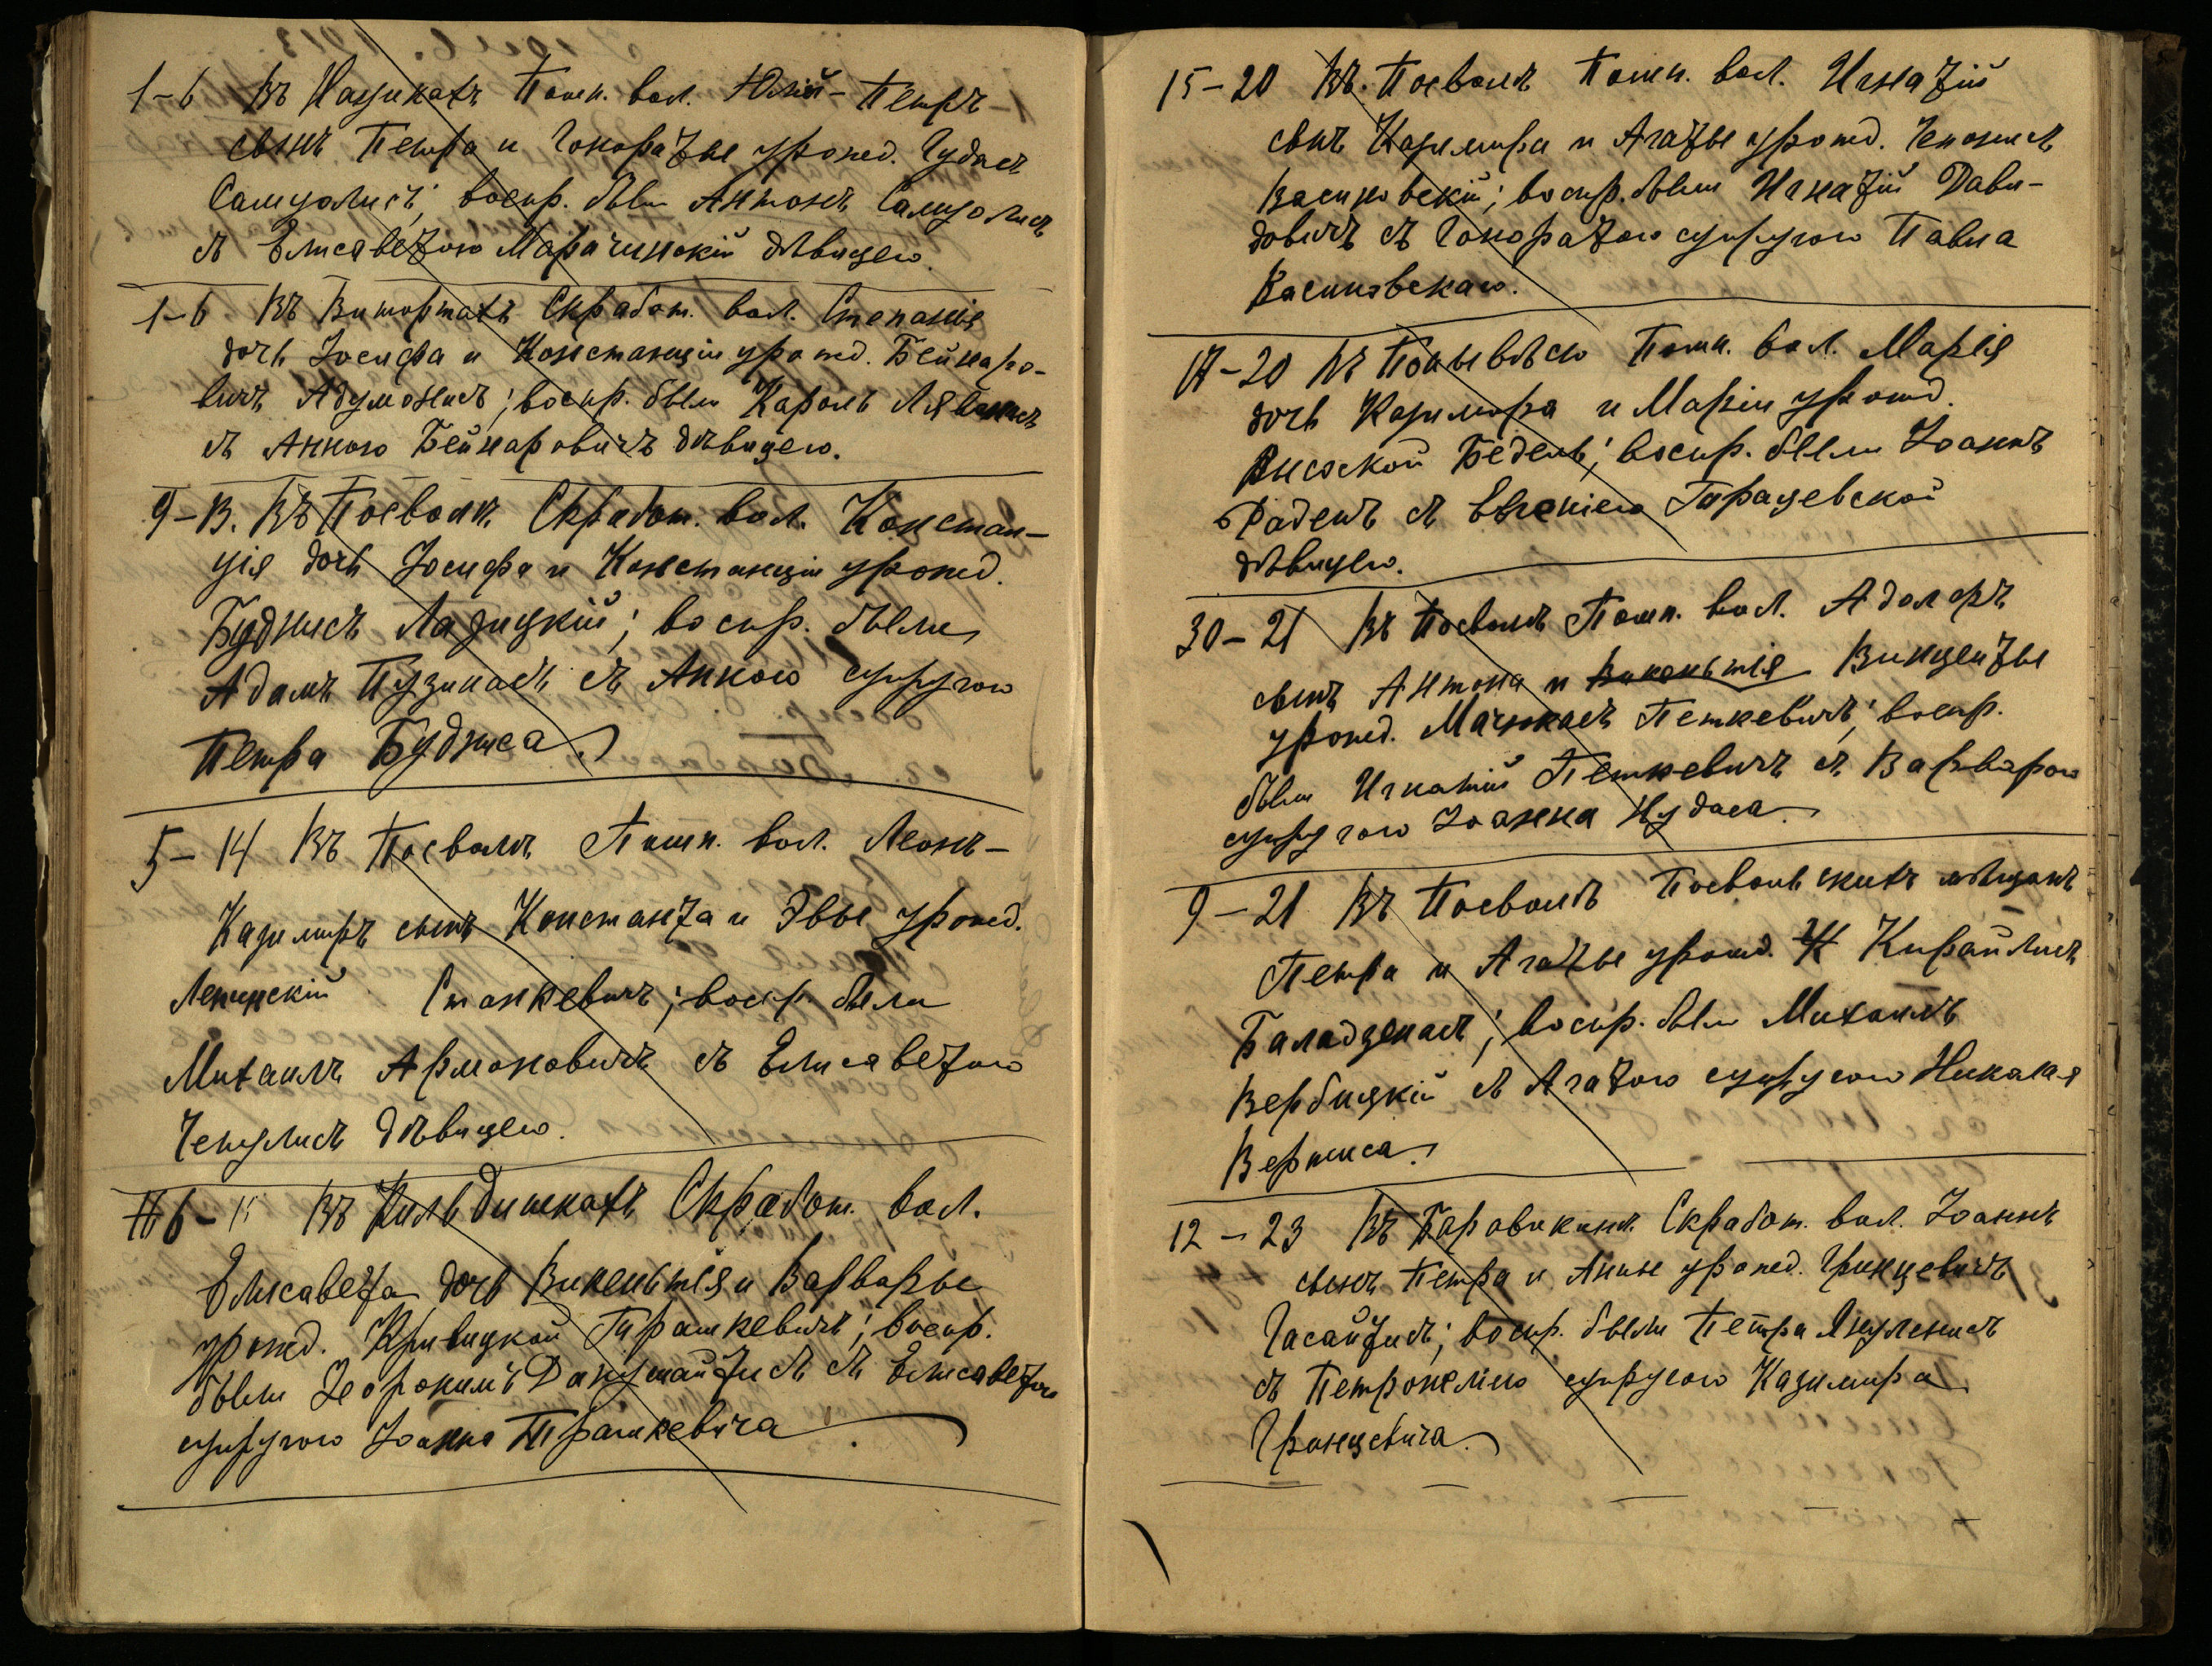 1-6 Въ Нацикахъ Пошн. вол. Юлій-Петръ-
сынъ Петра и Гонораты урожд. Гудасъ
Самуолисъ; воспр. были Антонъ Самуолисъ
съ Елисаветою Марачинскій дѣвицею.
1-6 Въ Витортахъ Скработ. вол. Степанія
дочь Іосифа и Констанціи урожд. Бейнаро-
вичъ Адумонисъ; воспр. были Кароль
съ Анною Бейнаровичъ дѣвицею.
9-13. Въ Посволѣ Скработ. вол. Констан-
ція дочь Іосифа и Констанціи урожд.
Буджисъ Лазицкій; воспр. были
Адамъ Пузинасъ съ Анною супругою
Петра Буджиса.
5-14 Въ Посволѣ Пошн. вол. Леонъ-
Казимиръ сынъ Константа и Эвы урожд.
Лепинскій Станкевичъ; воспр. были
Михаилъ Армоновичъ съ Елисаветою
Чепулисъ дѣвицею.
6-15 Въ Кильдишкахъ Скработ. вол.
Елисавета дочь Викентія и Варвары
урожд. Кривицкой Тирашкевичъ; воспр.
были съ Елисаветою
супругою Іоанна Тирашкевича.
15-20 Въ Посволѣ Пошн. вол. Игнатій
сынъ Казимира и Агаты урожд. Чепонисъ
Васинов­скій; воспр. были Игнатій Дави-
довичъ съ Гоноратою супругою Павла
Васиновскаго.
17-20 Въ Поневѣжѣ Пошн. вол. Марія
дочь Казимира и Маріи урожд.
Высоской Беденъ; воспр. были Іоаннъ
Раденъ съ Евгеніею Тирацевской
дѣвицею.
30-21 Въ Посволѣ Пошн. вол. Адолфъ
сынъ Антона и Викентія Винценты
урожд. Мачюкасъ Петкевичъ; воспр.
были Игнатій Петкевичъ съ Варварою
супругою Іоанна Нудаса.
9-21 Въ Посволѣ Посвольскихъ мѣщанъ
Петра и Агаты урожд. Кирайлисъ
Баладзенасъ; воспр. были Михаилъ
Вербицкій съ Агатою супругою Николая
Вержиса.
12-23 Въ Баровикинѣ Скработ. вол. Іоаннъ
сынъ Петра и Анны урожд. Гринцевичъ
Гасайтисъ; воспр. были Петра Януленисъ
съ Петронелію супругою Казимира
Гринцевича.